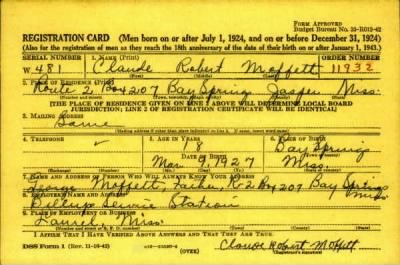 FORM APPROVED
Budget Bureau No. 33-R012-42
REGISTRATION CARD (Men born on or after July 1, 1924, and on or before December 31, 1924)
(Also for the registration of men as they reach the 18th anniversary of the date of their birth on or after January 1, 1943.)
SERIAL NUMBER 1. NAME (Print) ORDER NUMBER
W 481 Claude Robert Moffett 11932
(First) (Middle) (Last)
2. PLACE OF RESIDENCE (Print)
Route 2 Bx 207 Bay Spring Jasper Miss.
[THE PLACE OF RESIDENCE GIVEN ON LINE 2 ABOVE WILL DETERMINE LOCAL BOARD
JURISDICTION; LINE 2 OF REGISTRATION CERTIFICATE WILL BE IDENTICAL]
3. MAILING ADDRESS
Same
[Mailing address if other than place indicated on line 2. If same, insert word same]
4. TELEPHONE 5. AGE IN YEARS 6. PLACE OF BIRTH
18 Bay Spring
DATE OF BIRTH
Miss.
7. NAME AND ADDRESS OF PERSON WHO WILL ALWAYS KNOW YOUR ADDRESS
George Moffett, Father, R-2 Bx 207 Bay Spring Miss
8. EMPLOYER'S NAME AND ADDRESS
Service Station
9. PLACE OF EMPLOYMENT OR BUSINESS
Laurel, Miss.
I AFFIRM THAT I HAVE VERIFIED ABOVE ANSWERS AND THAT THEY ARE TRUE.
DSS Form 1 (Rev. 11-16-42) (OVER) Claude Robert Moffett
(Registrant's signature)